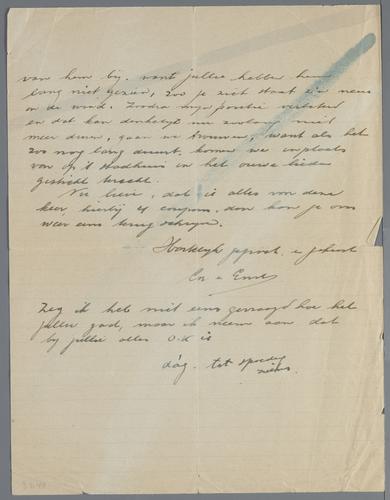 van hem bij. want jullie hebben hem
lang niet gezien, zoo je ziet staat zijn neus
in de wind. Zoodra mijn positie verbeterd
en dat kan denkelijk nu zoolang niet
meer duren, gaan we trouwen, want als het
zoo nog lang duurt. komen we inplaats
van op 't Stadhuis in het ouwe lieden
gesticht terecht.
Nu lieve, dat is alles voor deze
keer hierbij coupon, dan kan je ons
weer eens terug schrijven.
Hartelijk gegroet, gekust
Co Emile
Zeg ik heb niet eens gevraagd hoe het
jullie gaat, maar ik neem aan dat
bij jullie alles O.K is
dág. tot spoedig
ziens.